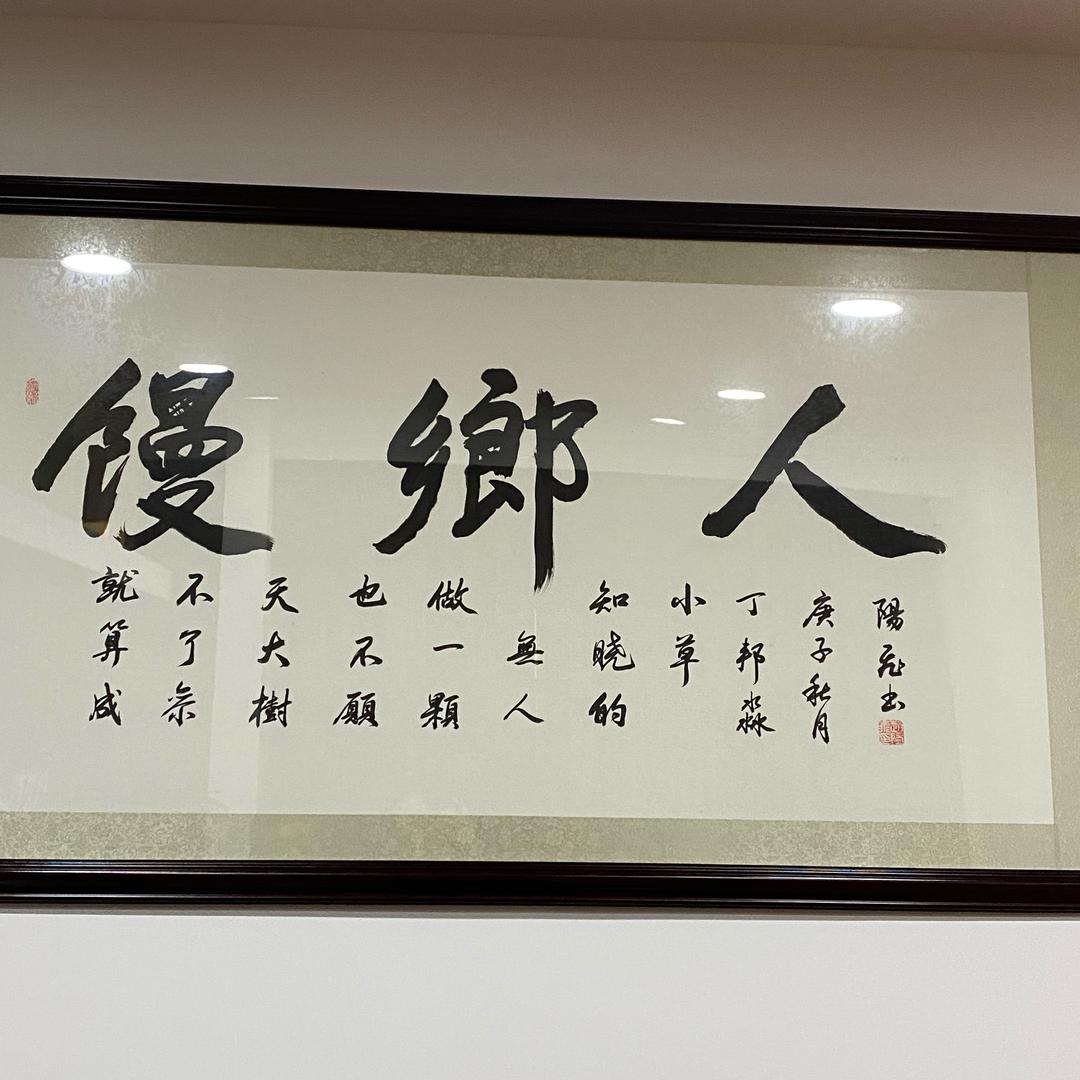 馒鄉人
就算成
不了参
天大樹
也不願
做一顆
無人
知晓的
小草
丁邦淼
庚子秋月
陽书